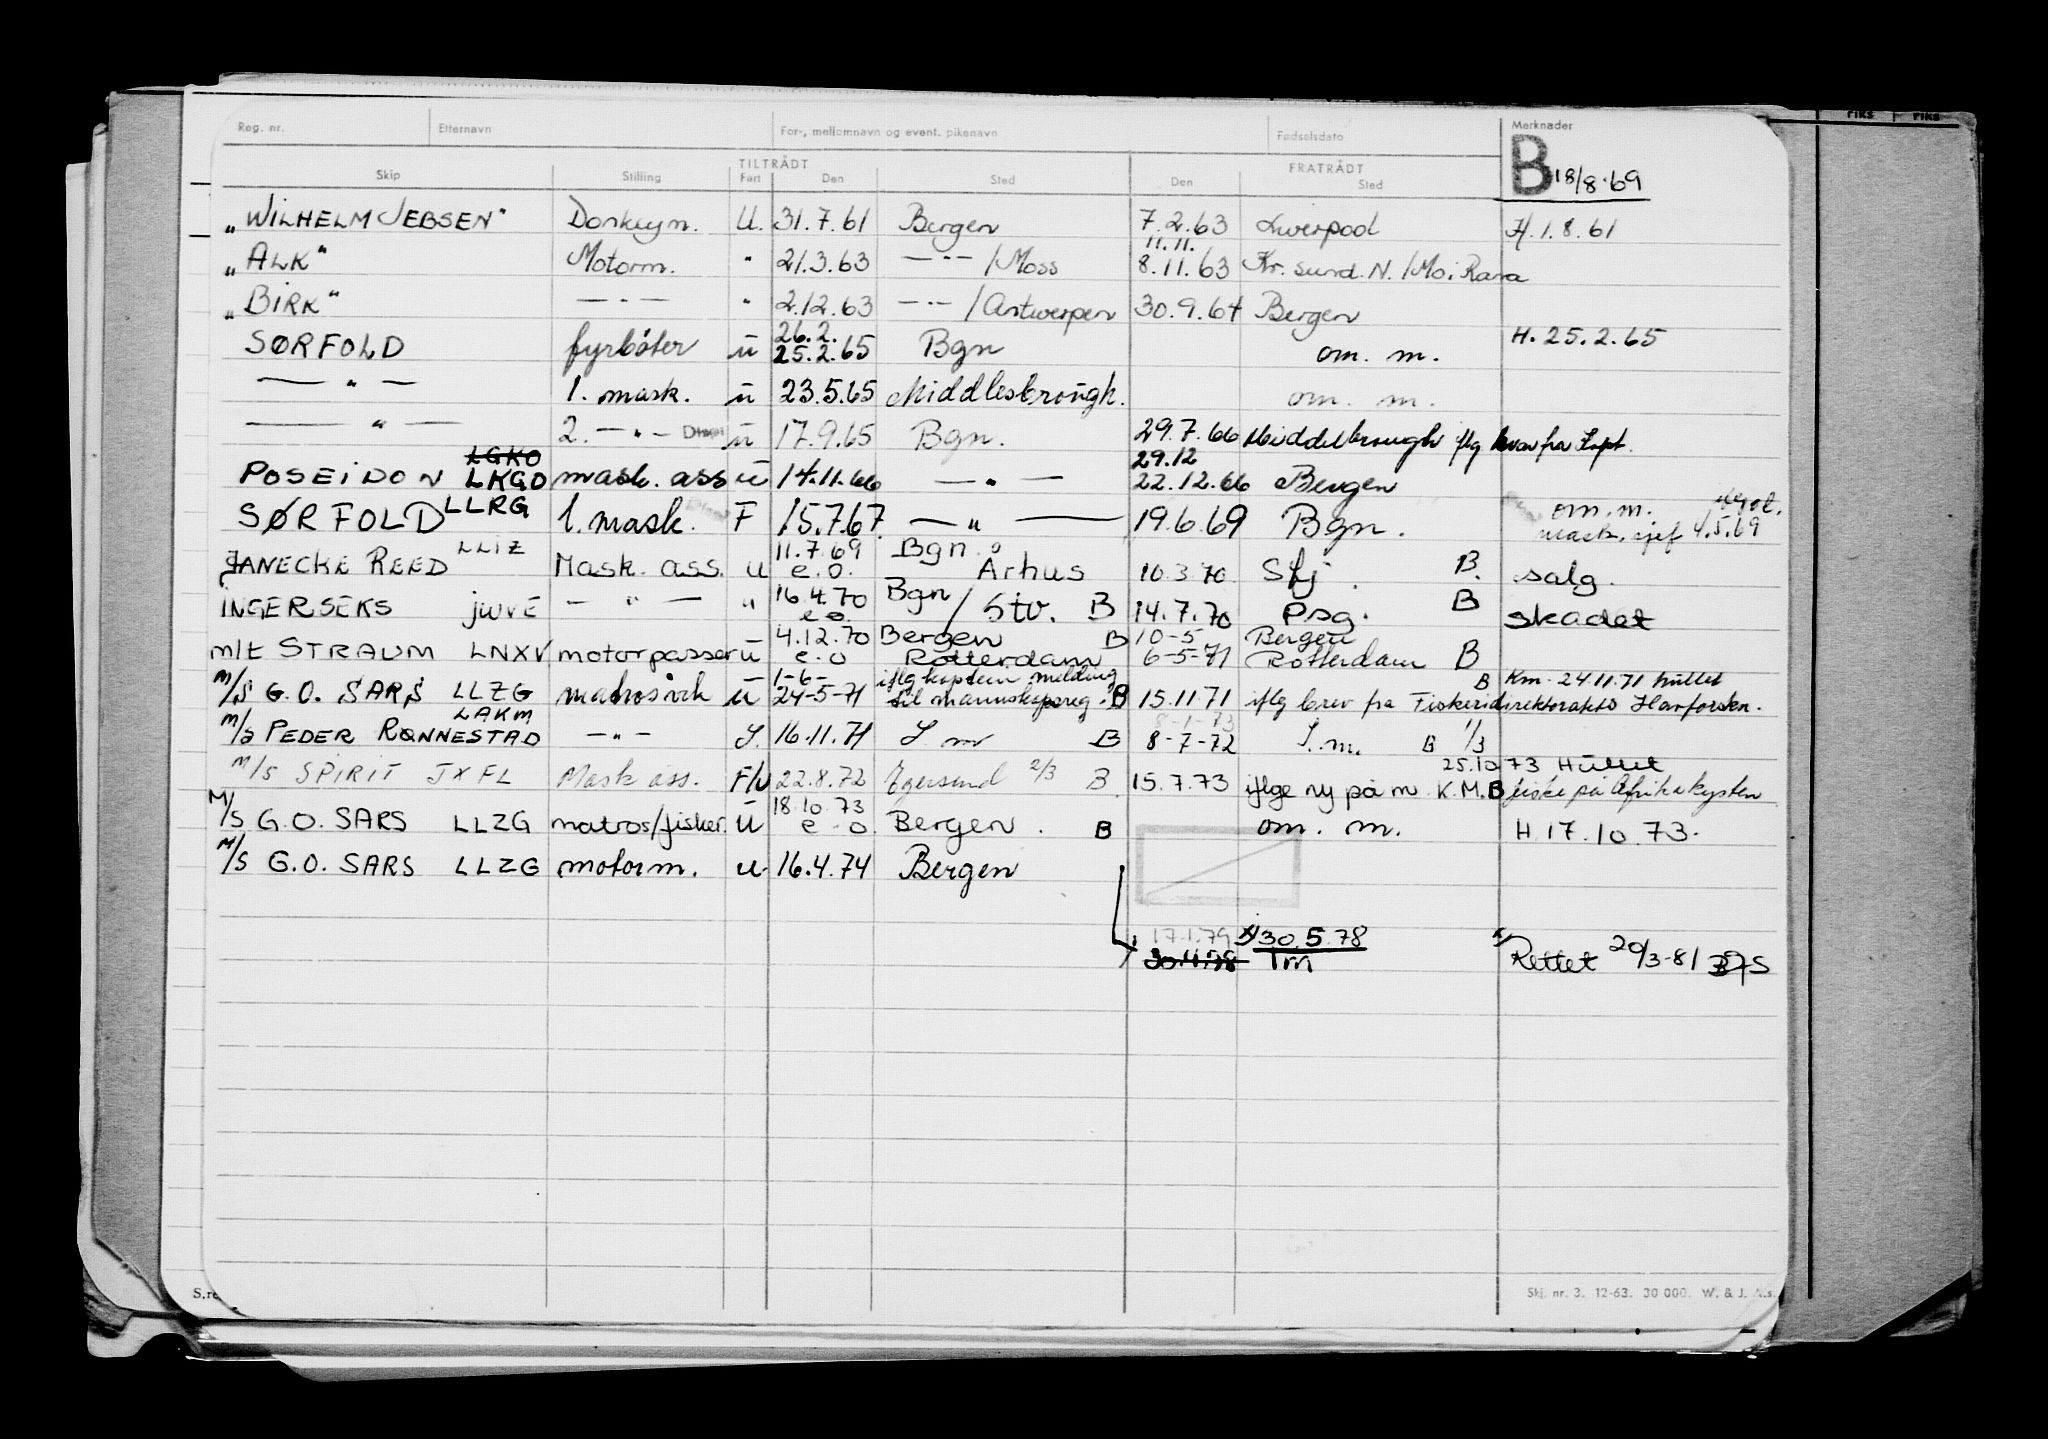 Reg. nr. Etternavn For-, mellomnavn og event. pikenavn Fødselsdato Merknader
TILTRÅDT FRATRÅDT B 18/8.69
Skip Stilling Fart Den Sted Den Sted
"WILHELM JEBSEN" Donkeym. U. 31.7.61 Bergen 7.2.63 Liverpool H. 1.8.61
11.11.
"ALK" Motorm. " 21.3.63 — " — /Moss 8.11.63 Kr.sund.N./Mo i Rana
"BIRK" — " — " 2.12.63 — " — /Antwerpen 30.9.64 Bergen
26.2.
SØRFOLD fyrbøter u 25.2.65 Bgn om. m. H. 25.2.65
— " — 1. mask. u 23.5.65 Middlesbrough. om. m.
— " — 2. — " — u 17.9.65 Bgn. 29.7.66 Middelbrough iflg brev fra Kapt.
LGKO 29.12
POSEIDON LKGD mask. ass u 14.11.66 — " — 22.12.66 Bergen
SØRFOLD LLRG 1. mask. F 15.7.67. — " — 19.6.69 Bgn. om. m.
mask. sjef 4.5.69
LLIZ 11.7.69 Bgn
JANECKE REED Mask. ass. u e.o. Århus 10.3.70 Sfj. B. salg.
16.4.70 Bgn
INGERSEKS JWVE — " — " e.o. / Stv. B 14.7.70 Psg. B skadet
4.12.70 Bergen B 10-5 Bergen
m/t STRAUM LNXV motorpasser u e.o Rotterdam 6-5-71 Rotterdam B
1-6- iflg kaptein melding B Km. 24.11.71 hullet
M/S G.O. SARS LLZG matrosvik u 24-5-71 til mannskapsreg. B 15.11.71 iflg brev fra Fiskeridirektoratets Havforskn.
LAKM 8-1-73
M/S PEDER RØNNESTAD — " — S. 16.11.71 S.m B 8-7-72 S.m. B 1/3
25.10 73 Hullet
M/S SPIRIT JXFL Mask ass. F/U 22.8.72 Egersund 2/3 B 15.7.73 iflge ny på m K.M. B fiske på Afrikakysten
18.10.73
M/S G.O. SARS LLZG matros/fisker. u e.o. Bergen. B om. m. H. 17.10.73.
M/S G.O. SARS LLZG motorm. u. 16.4.74 Bergen
17.1.79 x) 30.5.78
30.4.78 Tm x) Rettet 20/3-81
S.re Skj. nr. 3. 12-63. 30 000. W. & J. A.s.